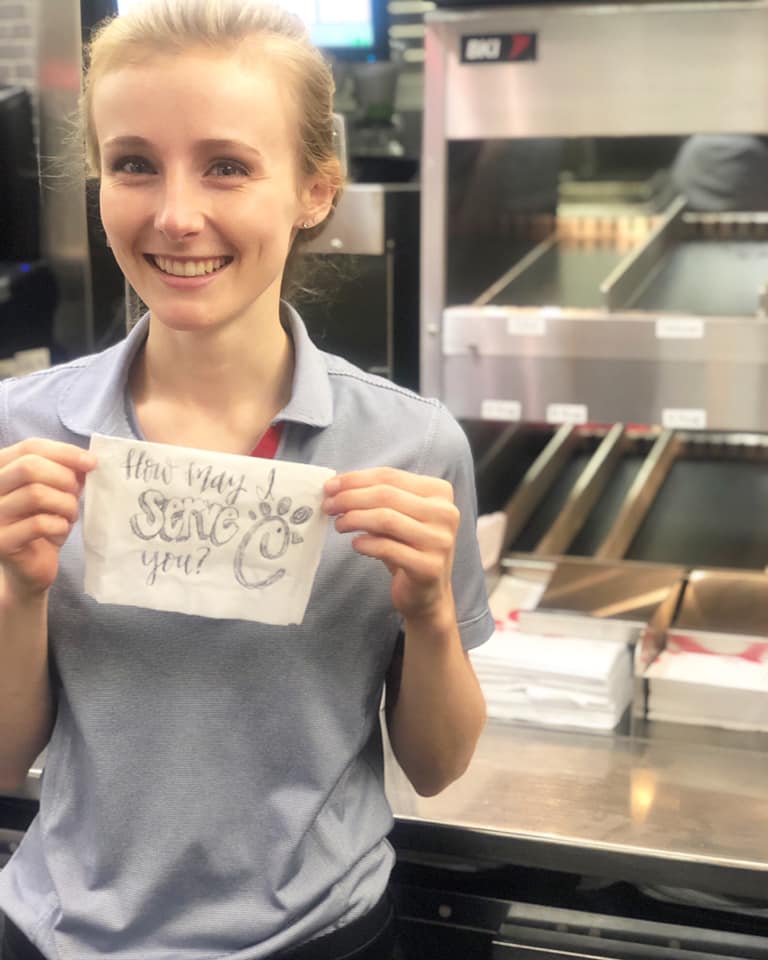 BKI
How may I
Serve
you?